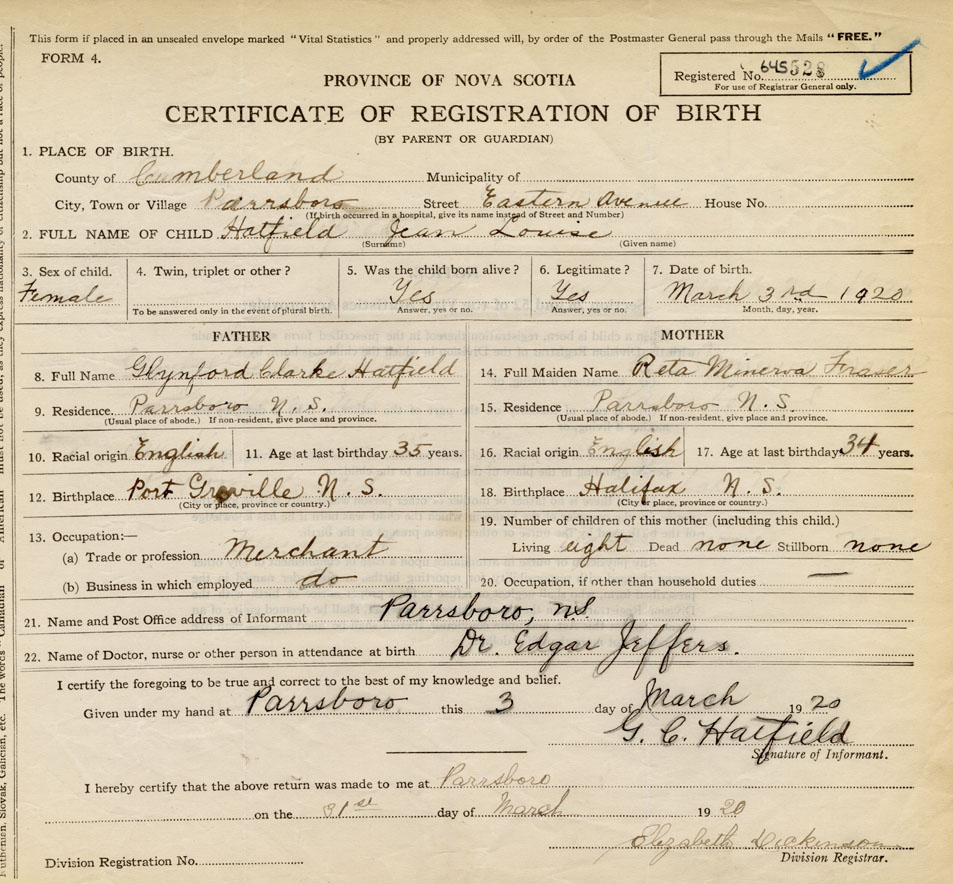 This form if placed in an unsealed envelope marked "Vital Statistics" and properly addressed will, by order of the Postmaster General pass through the Mails "FREE."
FORM 4.
Registered No. 645528
For use of Registrar General only.
PROVINCE OF NOVA SCOTIA
CERTIFICATE OF REGISTRATION OF BIRTH
(BY PARENT OR GUARDIAN)
1. PLACE OF BIRTH.
County of Cumberland Municipality of
City, Town or Village Parrsboro Street Eastern Avenue House No.
(If birth occurred in a hospital, give its name instead of Street and Number)
2. FULL NAME OF CHILD Hatfield Jean Louise
(Surname) (Given name)
3. Sex of child. 4. Twin, triplet or other? 5. Was the child born alive? 6. Legitimate? 7. Date of birth.
Female Yes Yes March 3rd 1920
To be answered only in the event of plural birth. Answer, yes or no. Answer, yes or no. Month, day, year.
FATHER
8. Full Name Glynford Clarke Hatfield
9. Residence. Parrsboro N. S.
(Usual place of abode.) If non-resident, give place and province.
10. Racial origin English 11. Age at last birthday 35 years.
12. Birthplace Port Greville N. S.
(City or place, province or country.)
13. Occupation:—
(a) Trade or profession Merchant
(b) Business in which employed do
MOTHER
14. Full Maiden Name Reta Minerva Fraser
15. Residence Parrsboro N. S.
(Usual place of abode.) If non-resident, give place and province.
16. Racial origin English 17. Age at last birthday 34 years.
18. Birthplace Halifax N. S.
(City or place, province or country.)
19. Number of children of this mother (including this child.)
Living eight Dead none Stillborn none
20. Occupation, if other than household duties —
21. Name and Post Office address of Informant Parrsboro, n.s.
22. Name of Doctor, nurse or other person in attendance at birth Dr. Edgar Jeffers.
I certify the foregoing to be true and correct to the best of my knowledge and belief.
Given under my hand at Parrsboro this 3 day of March 1920
G. C. Hatfield
Signature of Informant.
I hereby certify that the above return was made to me at Parrsboro
on the 31st day of March 1920
Elizabeth Dickinson
Division Registrar.
Division Registration No.